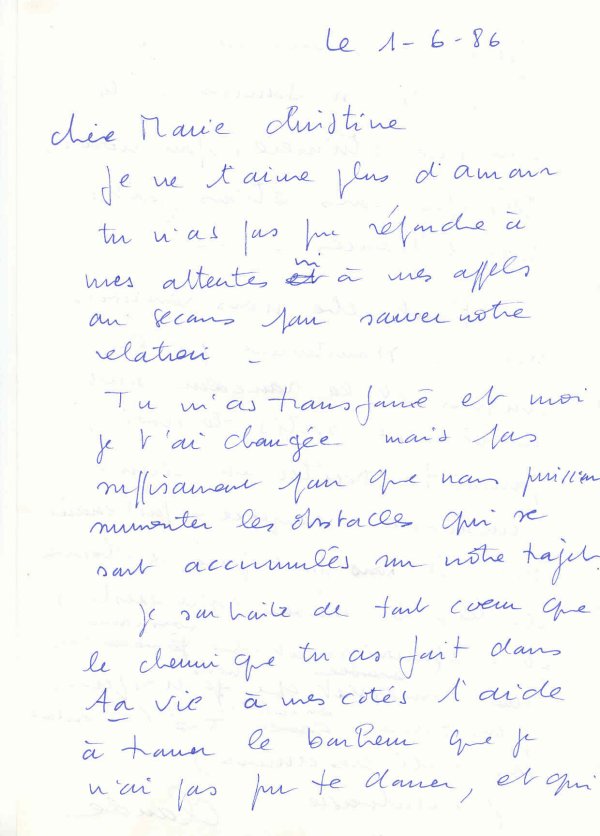 Le 1-6-86
chère Marie Christine
Je ne t'aime plus d'amour
tu n'as pas pu répondre à
mes attentes et ni à mes appels
au secours pour sauver notre
relation -
Tu m'as transformé et moi
je t'ai changée mais pas
suffisament pour que nous puissions
surmonter les obstacles qui se
sont accumulés sur notre trajet.
Je souhaite de tout coeur que
le chemin que tu as fait dans
ta vie à mes cotés t'aide
à trouver le bonheur que je
n'ai pas pu te donner, et qui